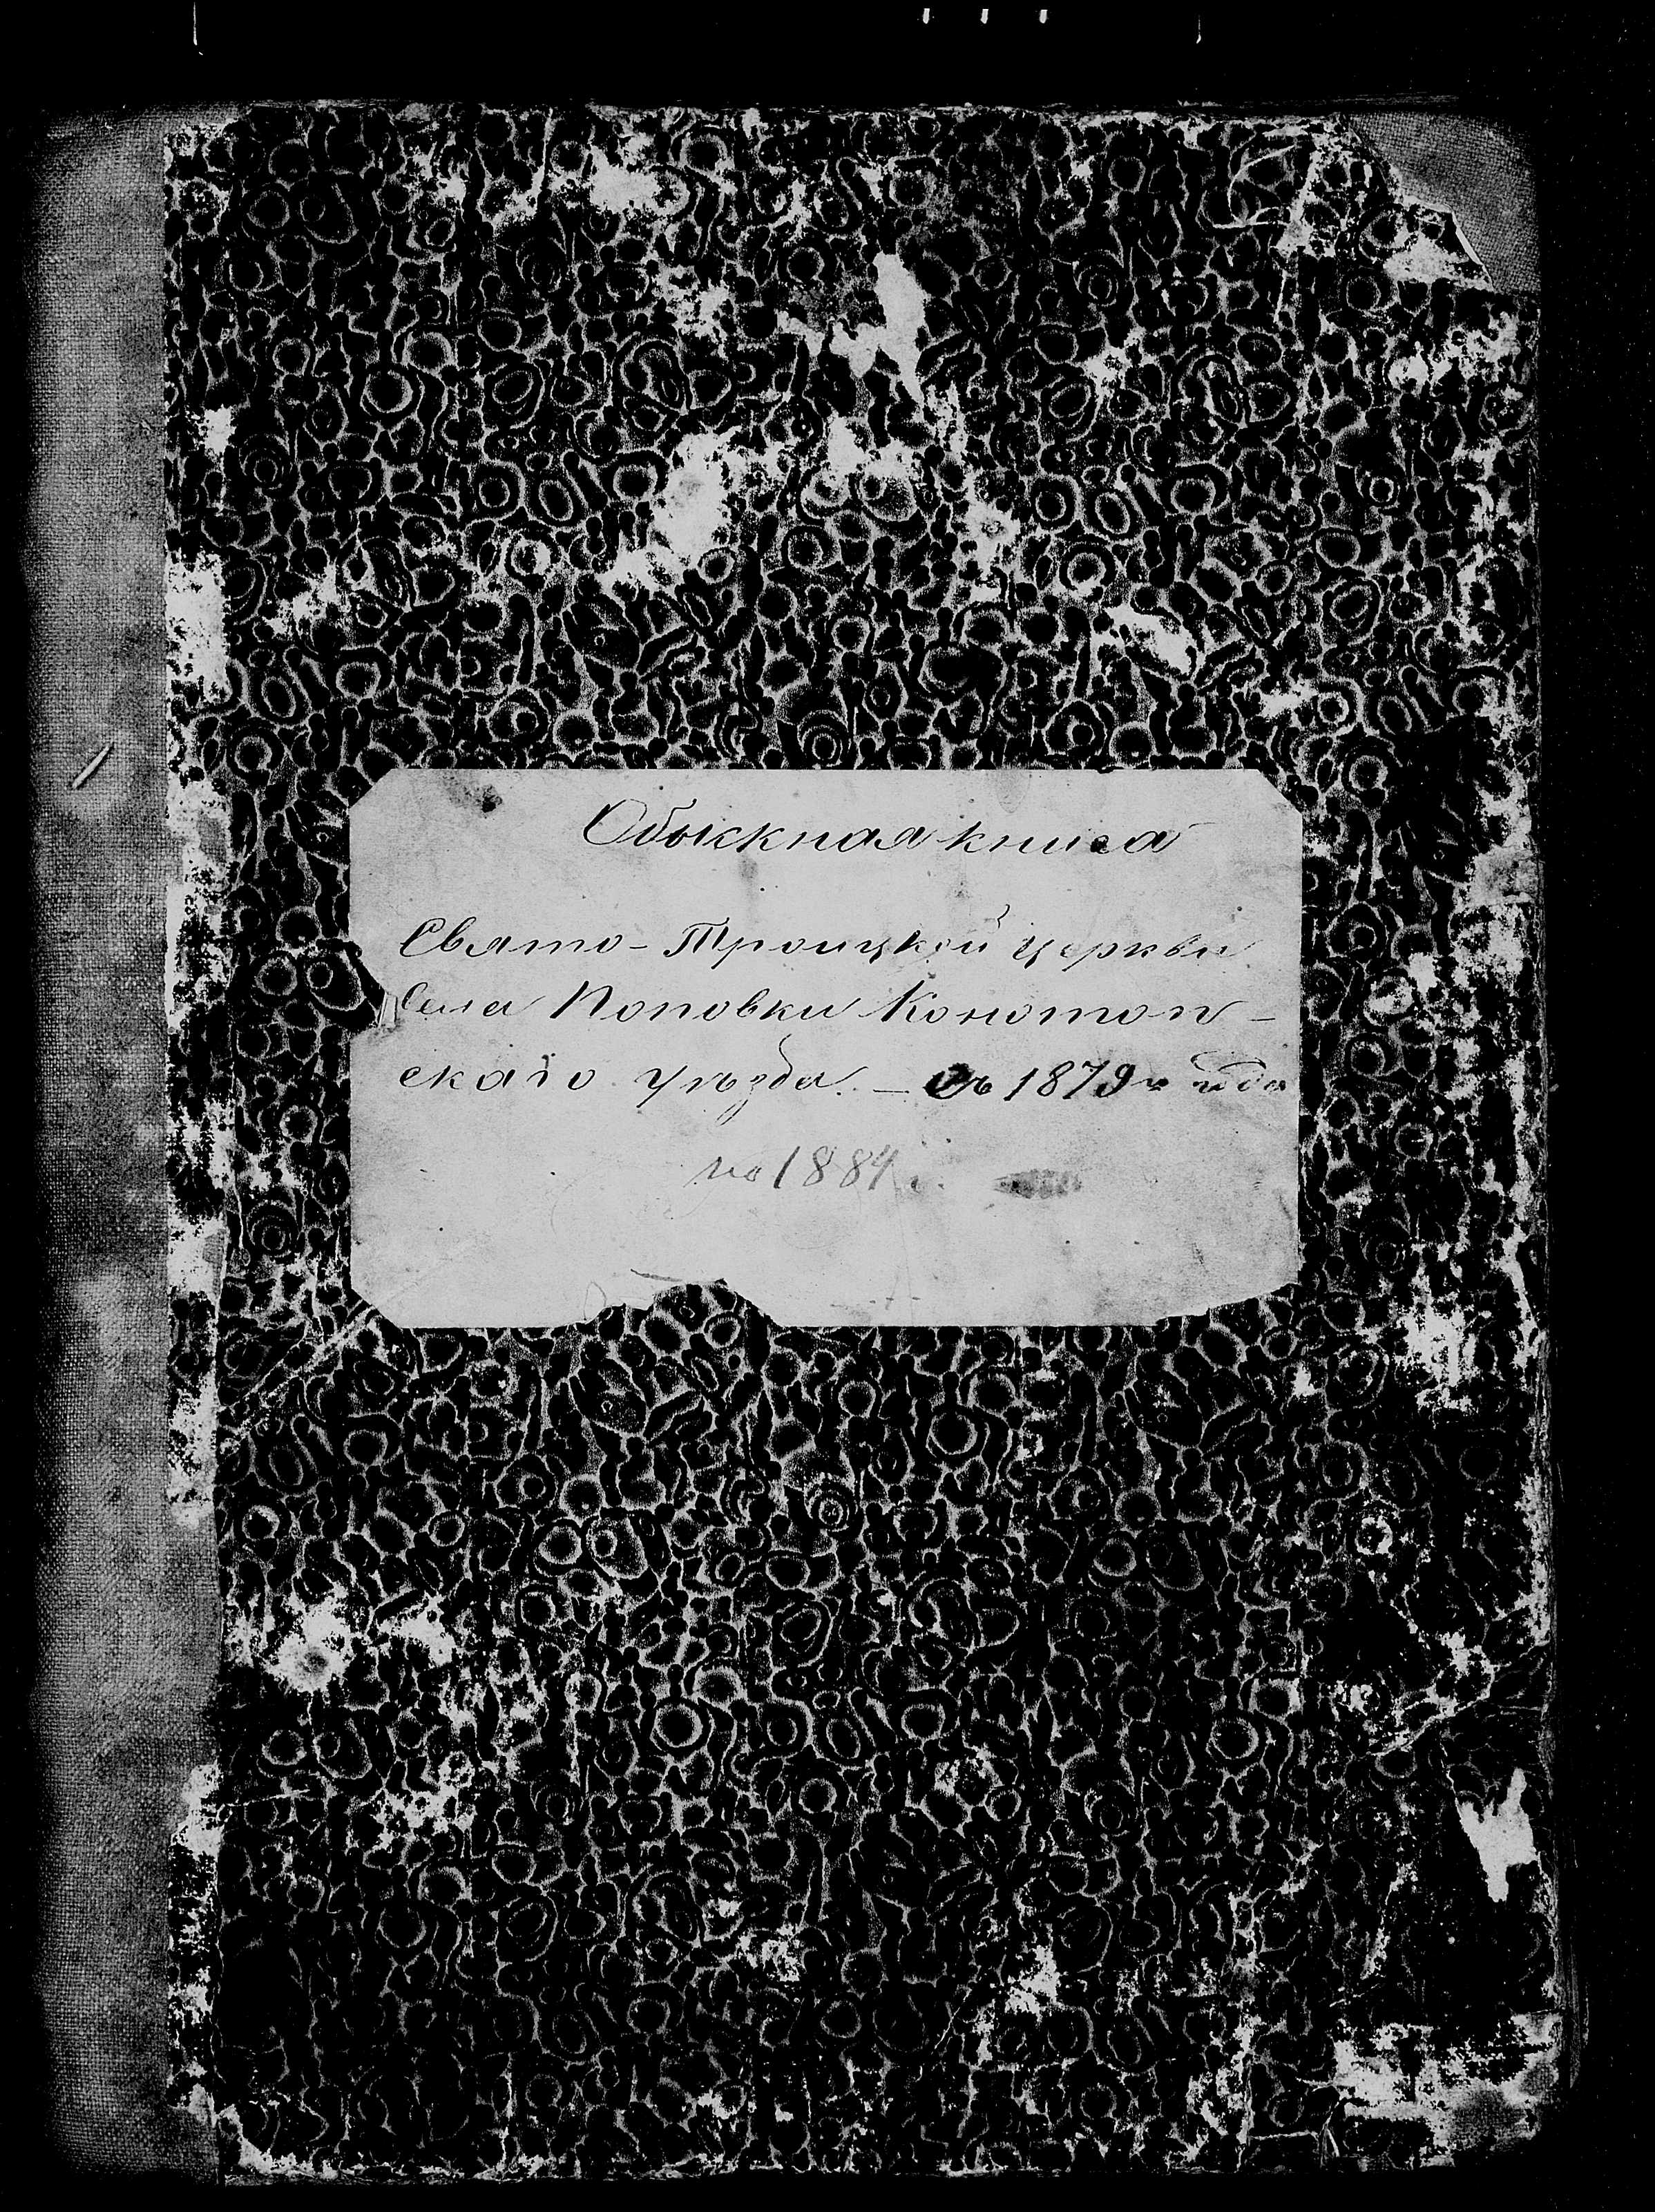 Обыскная книга
Свято-Троицкой церкви
Села Поповки Конотоп-
скаго уѣзда. — Съ 1879 года
по 1884 г.